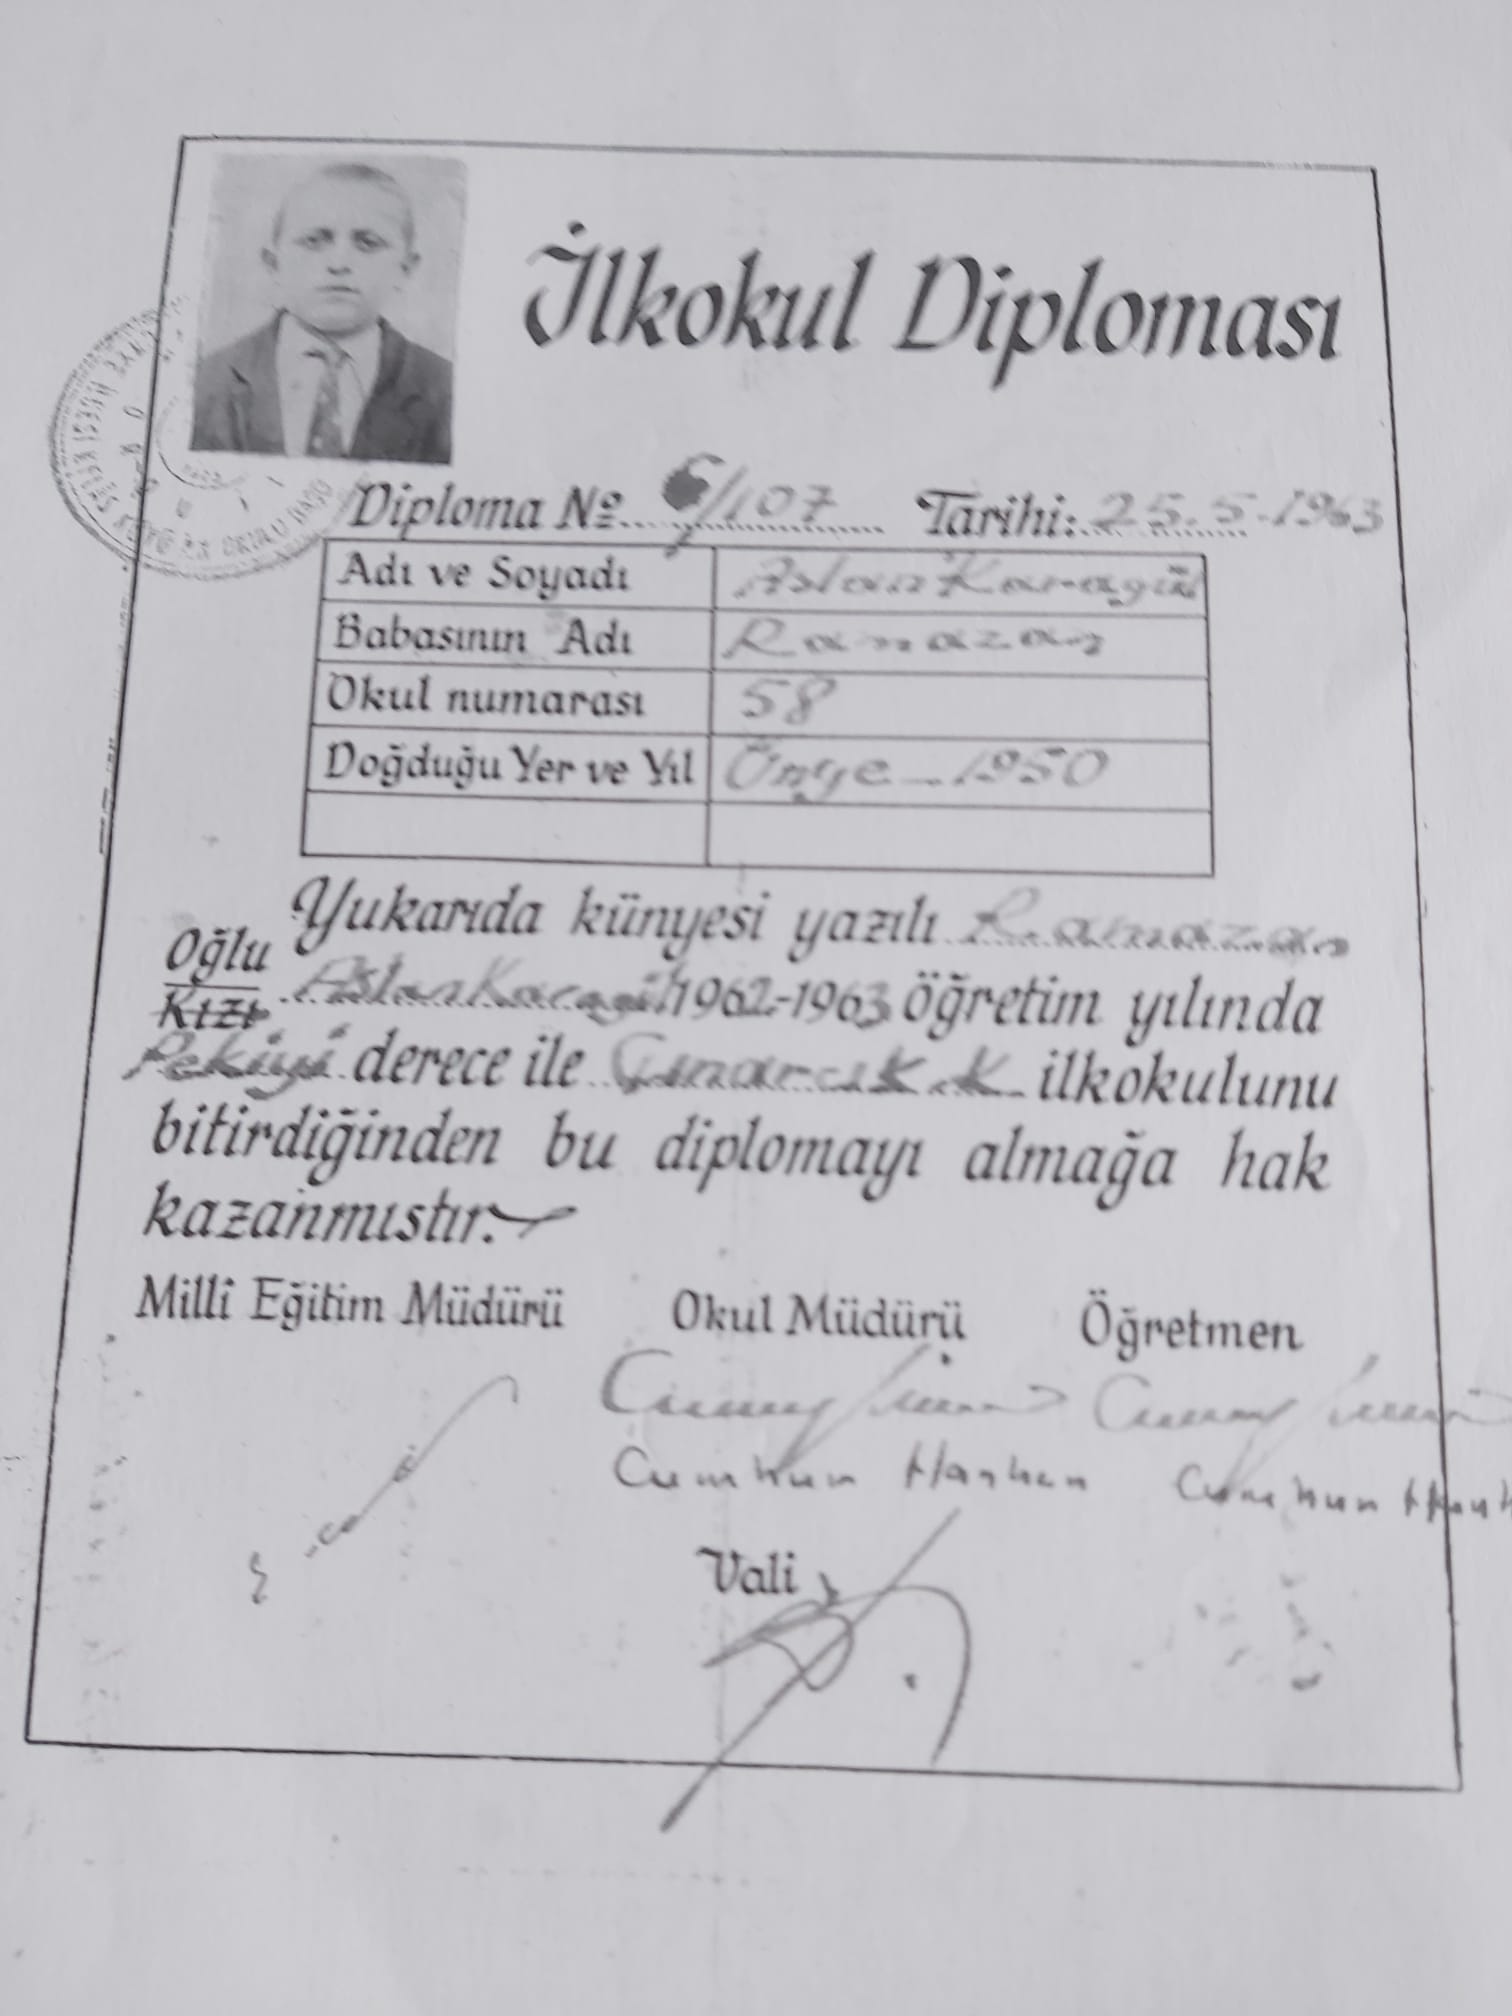 İlkokul Diploması
Diploma No 6/107 Tarihi: 25.5.1963
Adı ve Soyadı Aslan Karagül
Babasının Adı Ramazan
Okul numarası 58
Doğduğu Yer ve Yıl Ünye - 1950
Yukarıda künyesi yazılı Ramazan
Oğlu
Kızı Aslan Karagül 1962-1963 öğretim yılında
Pekiyi derece ile Çınarcık K. ilkokulunu
bitirdiğinden bu diplomayı almağa hak
kazanmıstır.
Millî Eğitim Müdürü Okul Müdürü Öğretmen
Vali